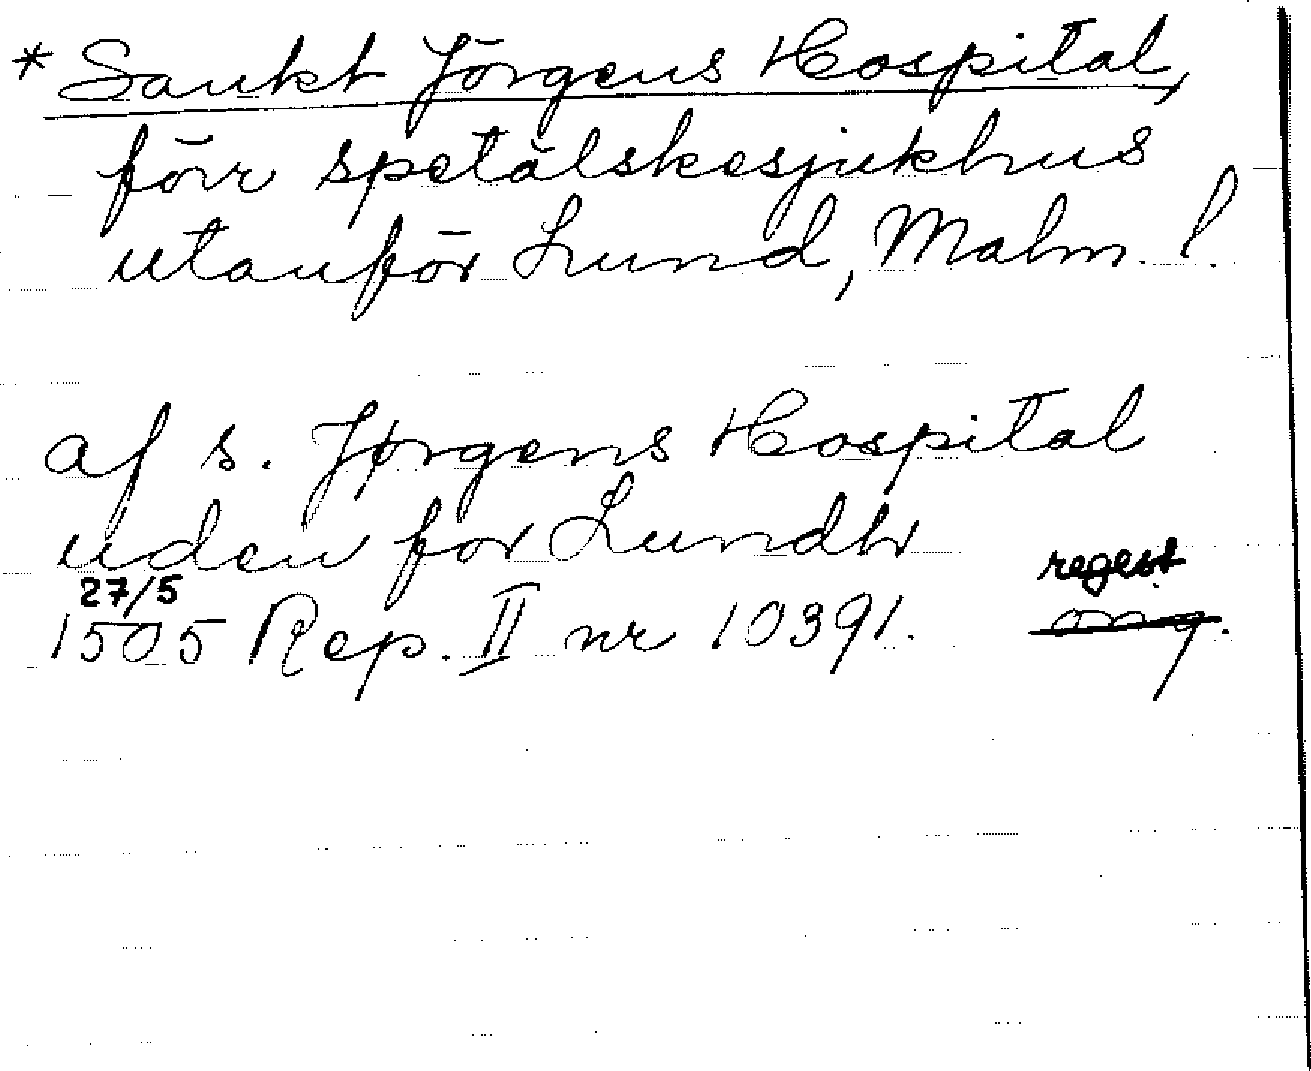 * Sankt Jörgens Hospital,
förr spetälskesjukhus
utanför Lund, Malm. l.
af s. Jørgens Hospital
uden for Lundh
27/5 regest
1505 Rep. II nr 10391. orig.